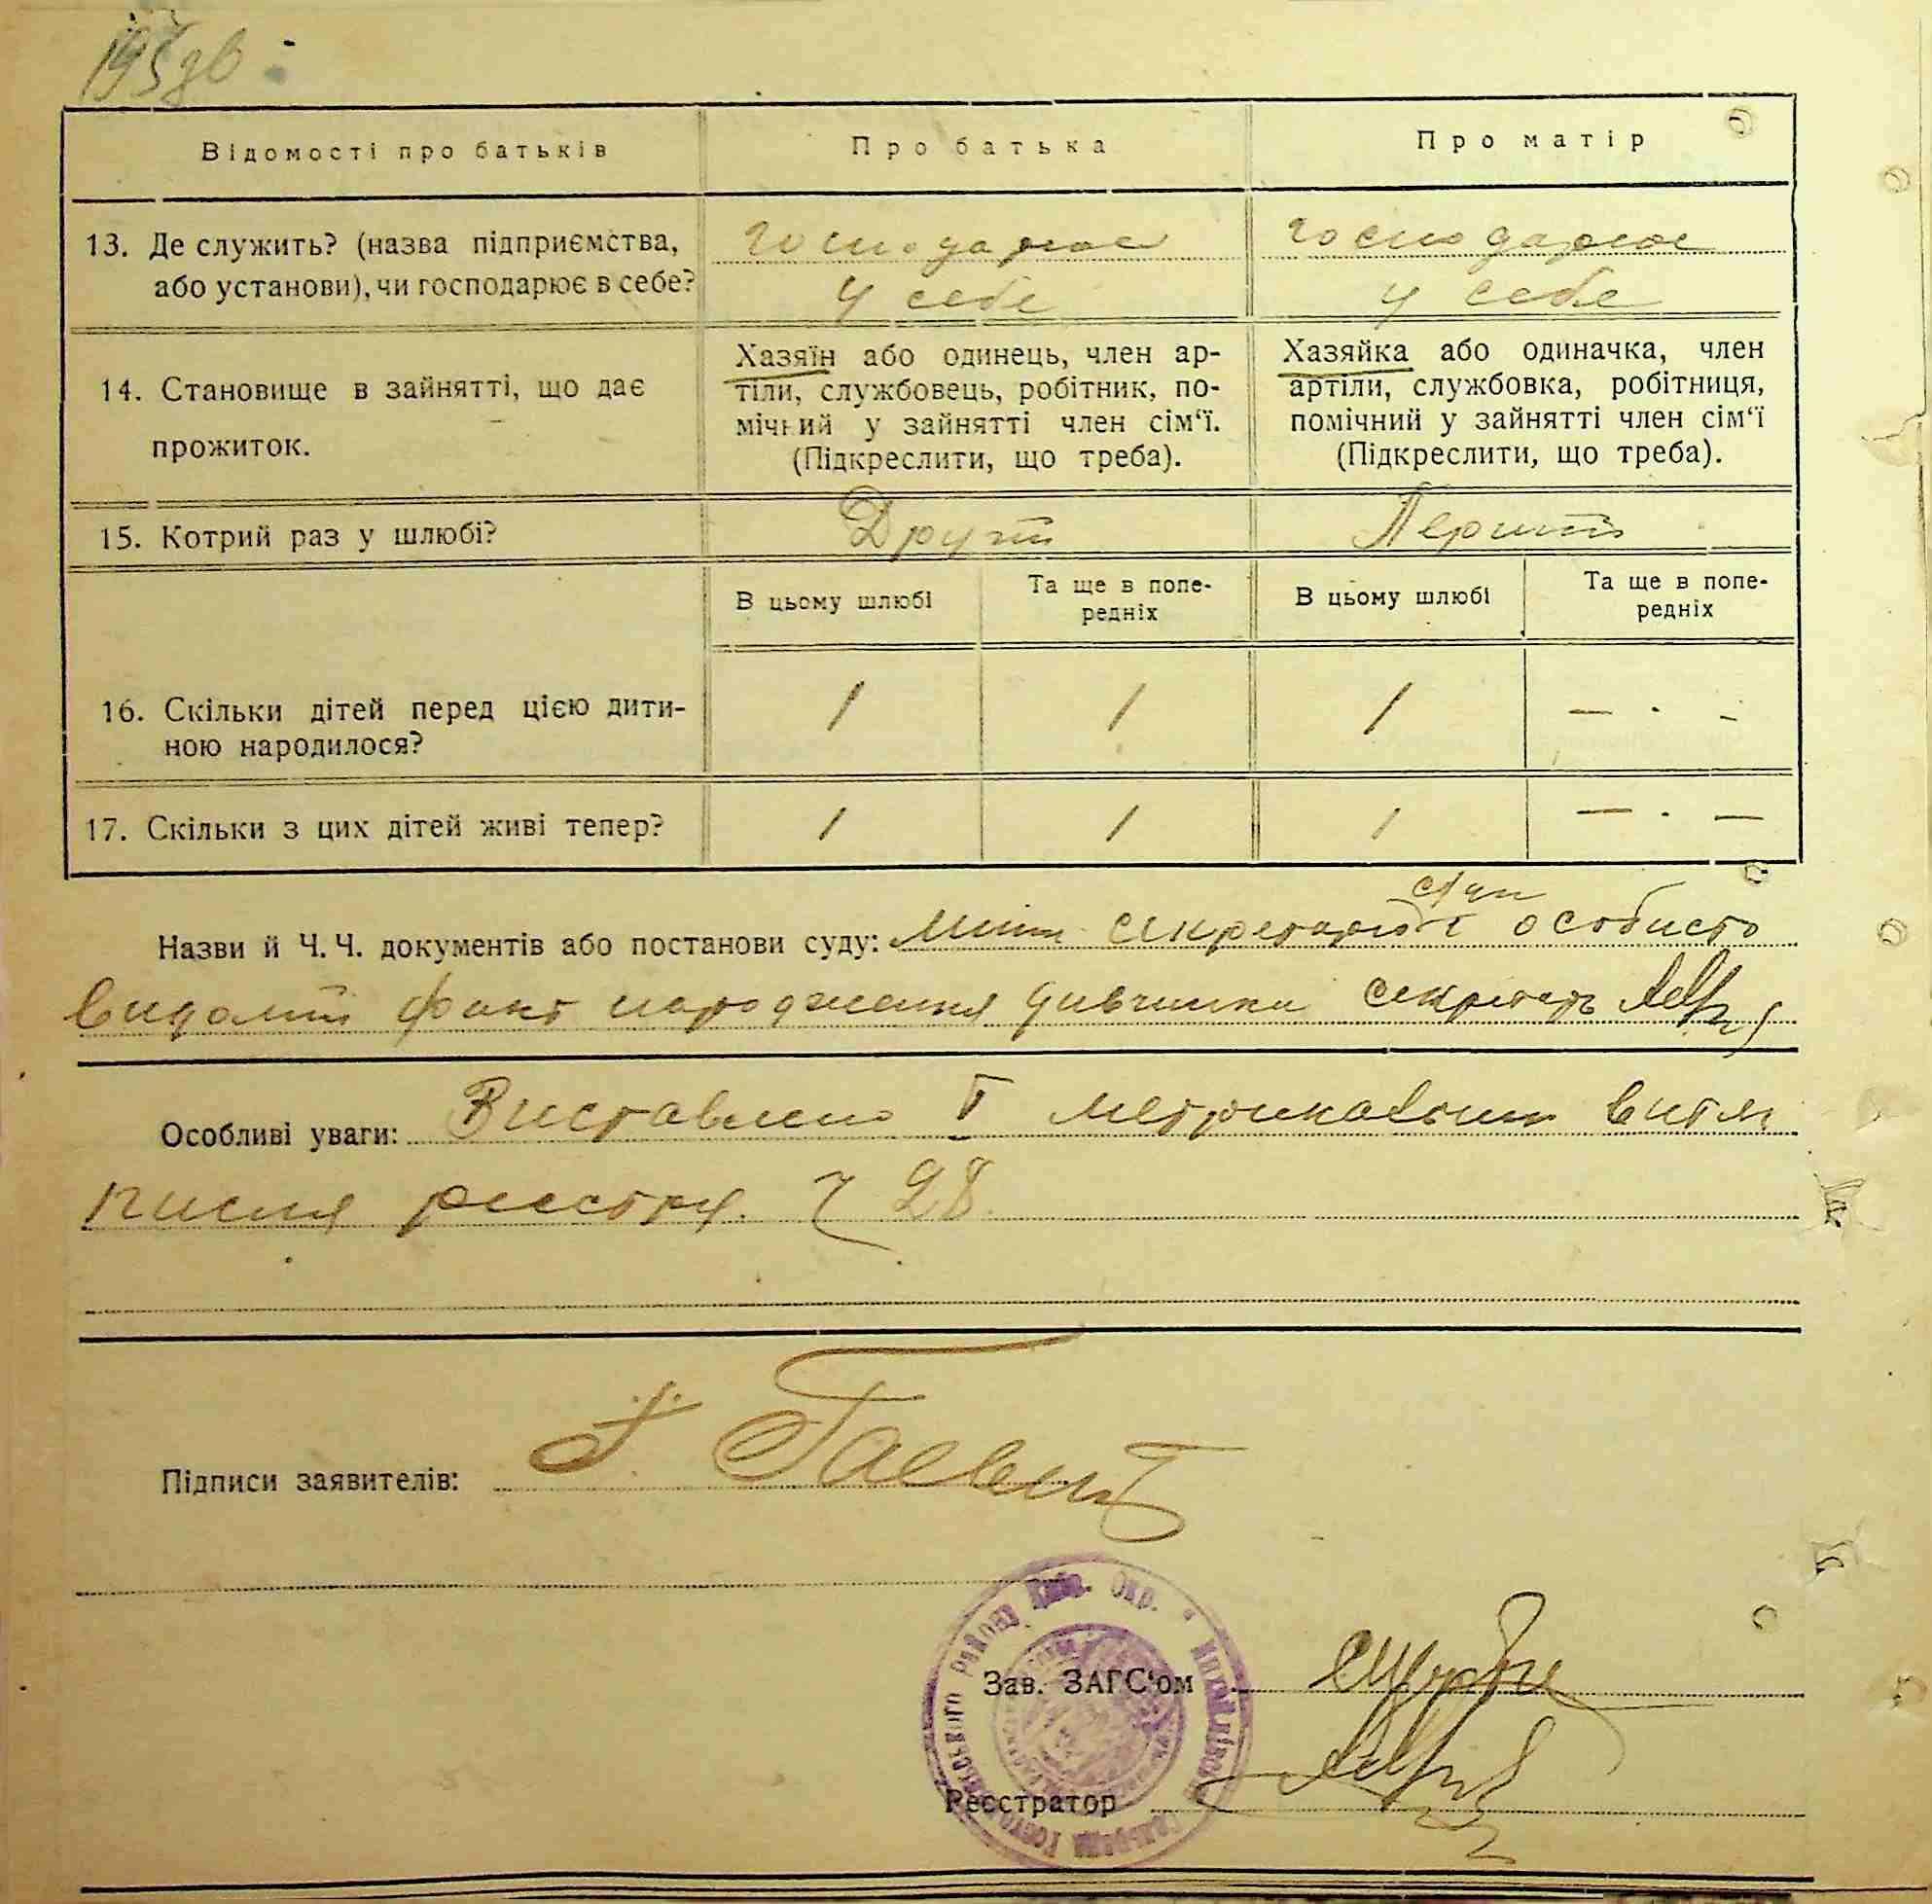 195зв
Відомості про батьків
Про батька
Про матір
13. Де служить? (назва підприємства,
або установи), чи господарює в себе?
господарює
у себе
господарює
у себе
14. Становище в зайнятті, що дає
прожиток.
Хазяїн або одинець, член ар-
тіли, службовець, робітник, по-
мічний у зайнятті член сім‘ї.
(Підкреслити, що треба).
Хазяйка або одиначка, член
артіли, службовка, робітниця,
помічний у зайнятті член сім‘ї
(Підкреслити, що треба).
15. Котрий раз у шлюбі?
Другий
Перший
В цьому шлюбі
Та ще в попе-
редніх
В цьому шлюбі
Та ще в попе-
редніх
16. Скільки дітей перед цією дити-
ною народилося?
1
1
1
— . -
17. Скільки з цих дітей живі тепер?
1
1
1
— . —
Назви й Ч. Ч. документів або постанови суду: особисто
факт народження дивчинки секретарь
Особливі уваги: Виставлено
писля реєстру ч 28
Підписи заявителів:
району Київ. Окр.
Зав. ЗАГС‘ом
Реєстратор